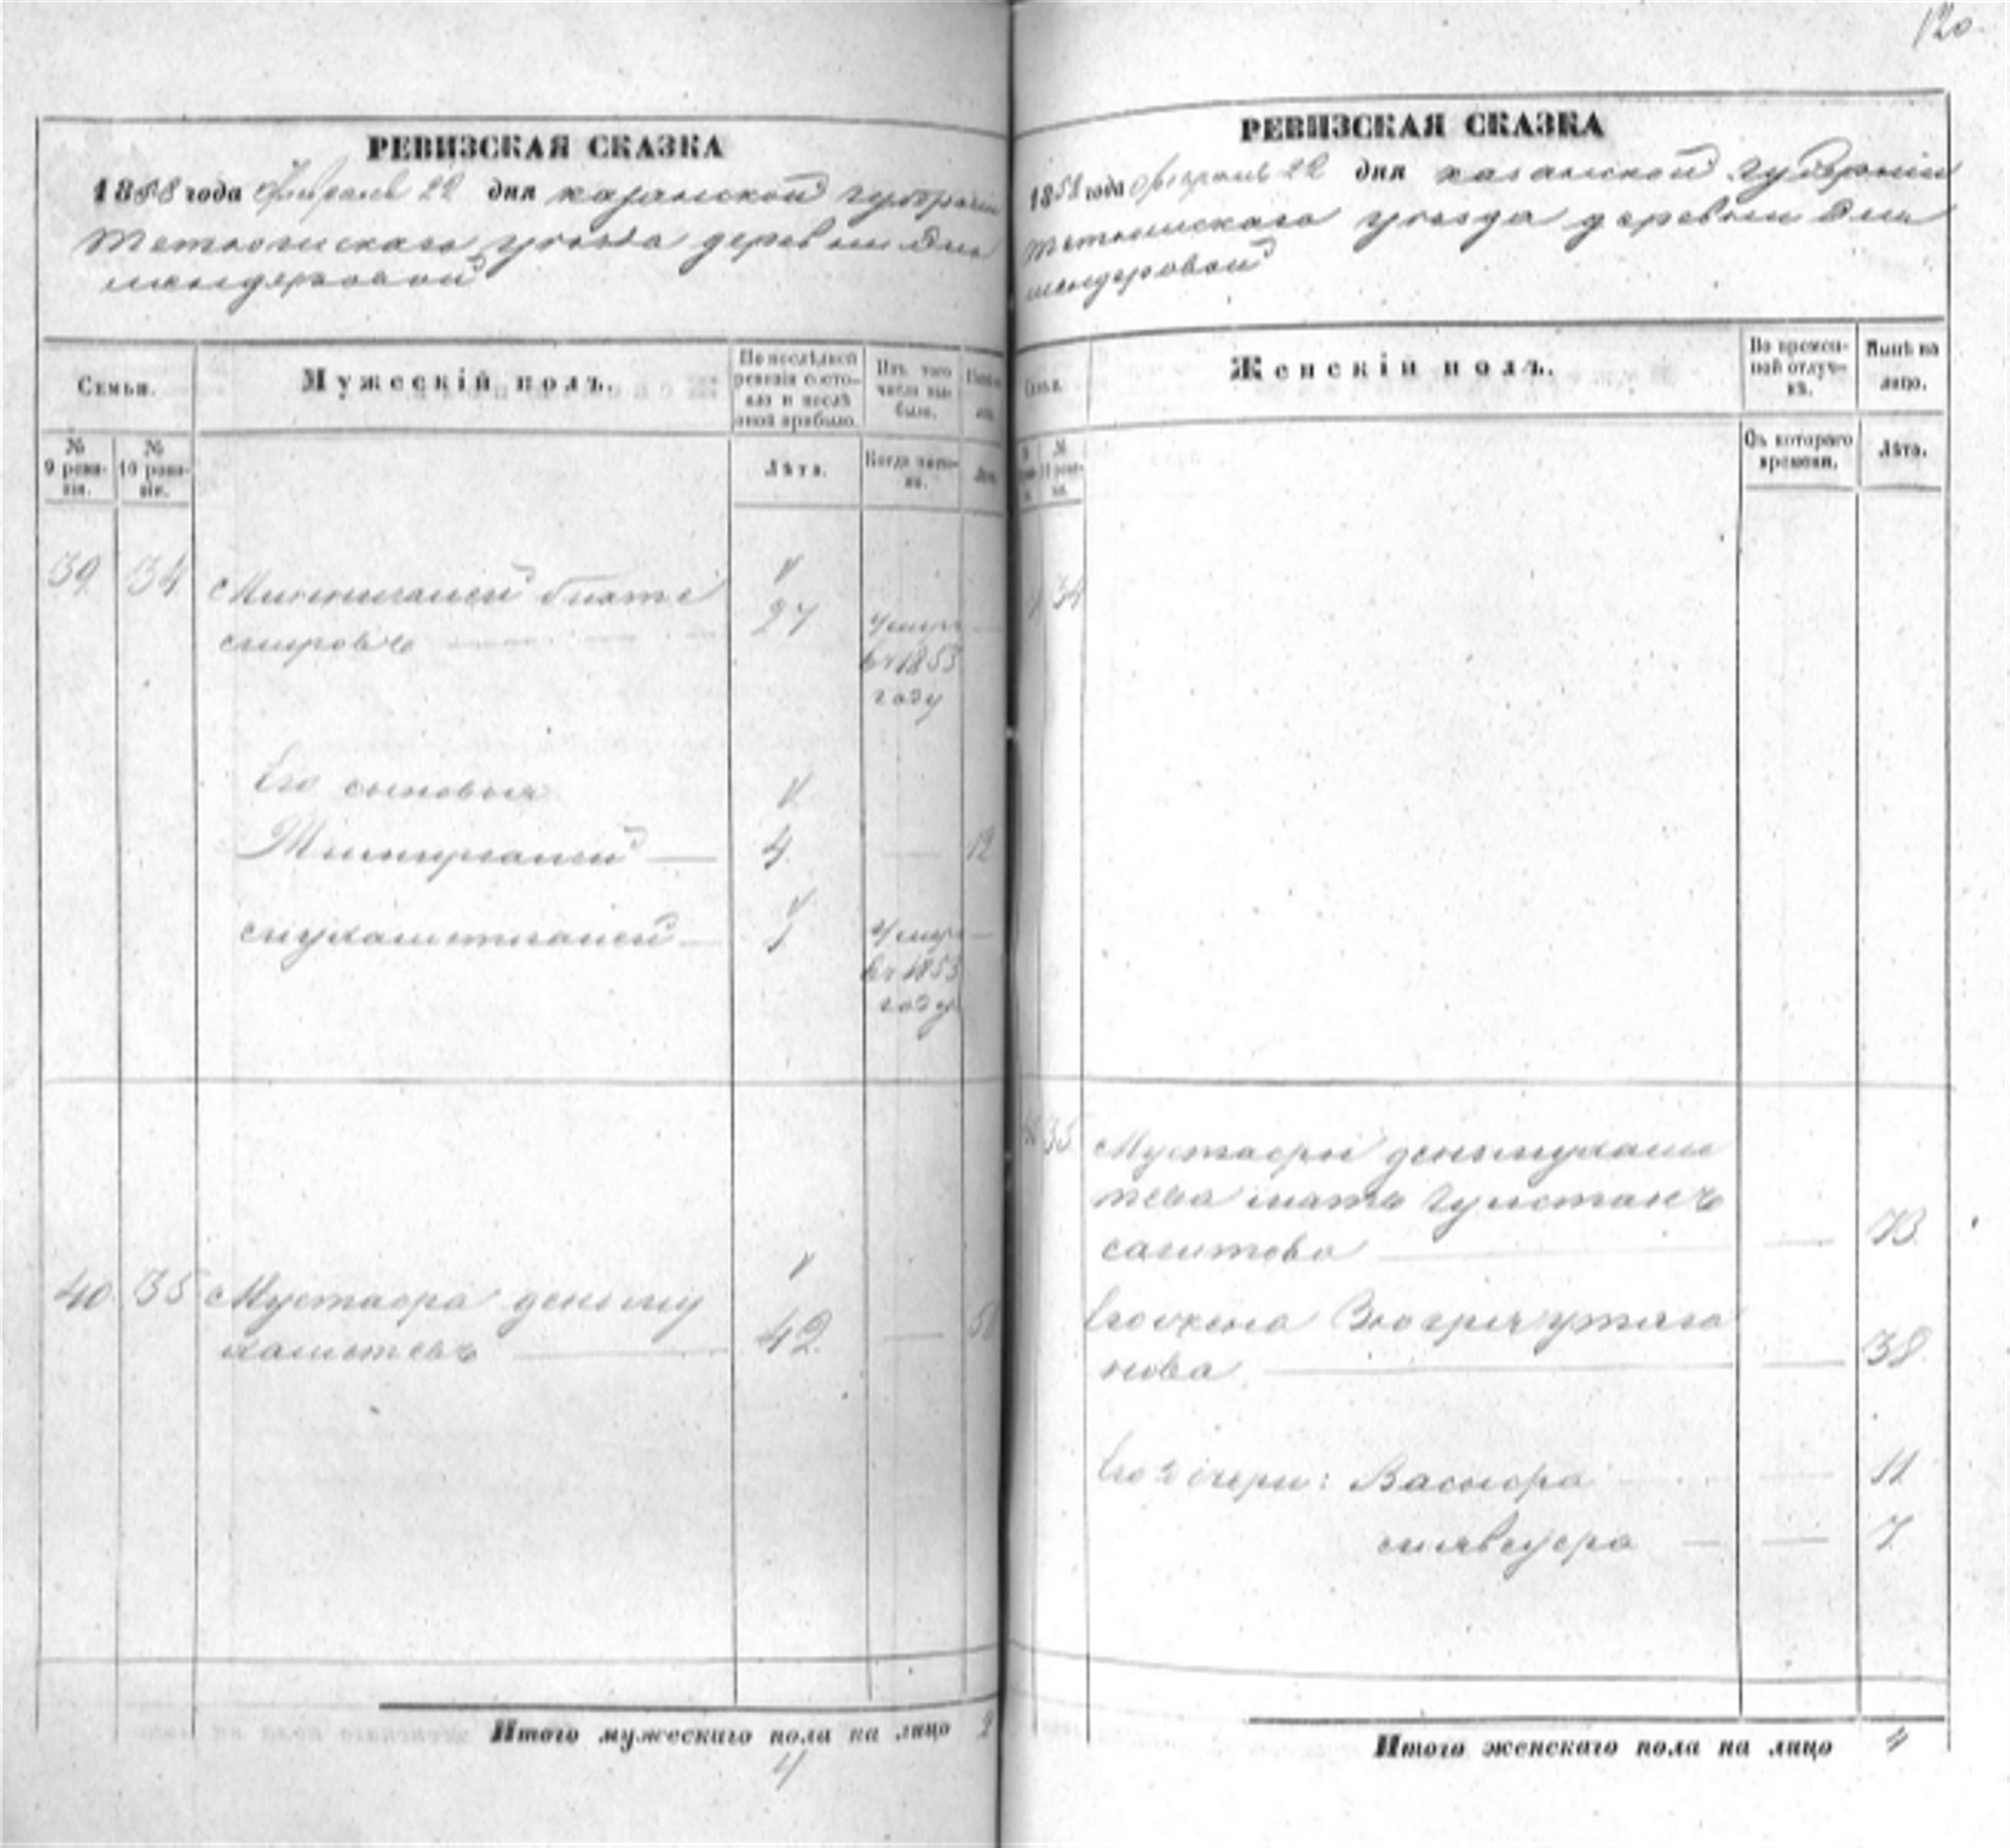 120
РЕВИЗСКАЯ СКАЗКА
1858 года Февраля 22 дня казанской губернии
тетюшскаго уезда деревни Аль
мендеровой
Семьи.
Мужескій полъ.
По послѣдней ревизіи состояло и послѣ оной прибыло.
Изъ того числа выбыло.
№ 9 ревизіи.
№ 10 ревизіи.
Лѣта.
Когда именно.
39 34
бикте
мировъ
27
умеръ
въ 1853
году
Его сыновья
4
12
Мухаметшей
умеръ
въ 1853
году
40 35 Мустафа деньму
хаметевъ
42
50
Итого мужескаго пола на лицо 2
4
РЕВИЗСКАЯ СКАЗКА
1858 года февраля 22 дня казанской губерніи
тетюшскаго уезда деревни Аль
мендеровой
Семьи.
Женскій полъ.
Во временной отлучкѣ.
Нынѣ на лицо.
Съ котораго времени.
Лѣта.
34
35 Мустафы деньмухаме
тева мать Гулстанъ
сагитова
73
Его жена Зюгря утяга
нова
38
Его дочери: Васифа
11
7
Итого женскаго пола на лицо 4